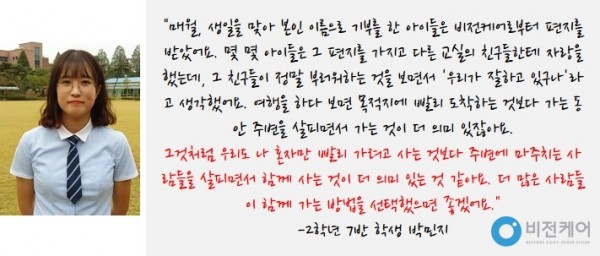 "매월, 생일을 맞아 본인 이름으로 기부를 한 아이들은 비전케어로부터 편지를
받았어요. 몇 몇 아이들은 그 편지를 가지고 다른 교실의 친구들한테 자랑을
했는데, 그 친구들이 정말 부러워하는 것을 보면서 '우리가 잘하고 있구나'라
고 생각했어요. 여행을 하다 보면 목적지에 빨리 도착하는 것보다 가는 동
안 주변을 살피면서 가는 것이 더 의미 있잖아요.
그것처럼 우리도 나 혼자만 빨리 가려고 사는 것보다 주변에 마주치는 사
람들을 살피면서 함께 사는 것이 더 의미 있는 것 같아요. 더 많은 사람들
이 함께 가는 방법을 선택했으면 좋겠어요."
-2학년 7반 학생 박민지
비전케어